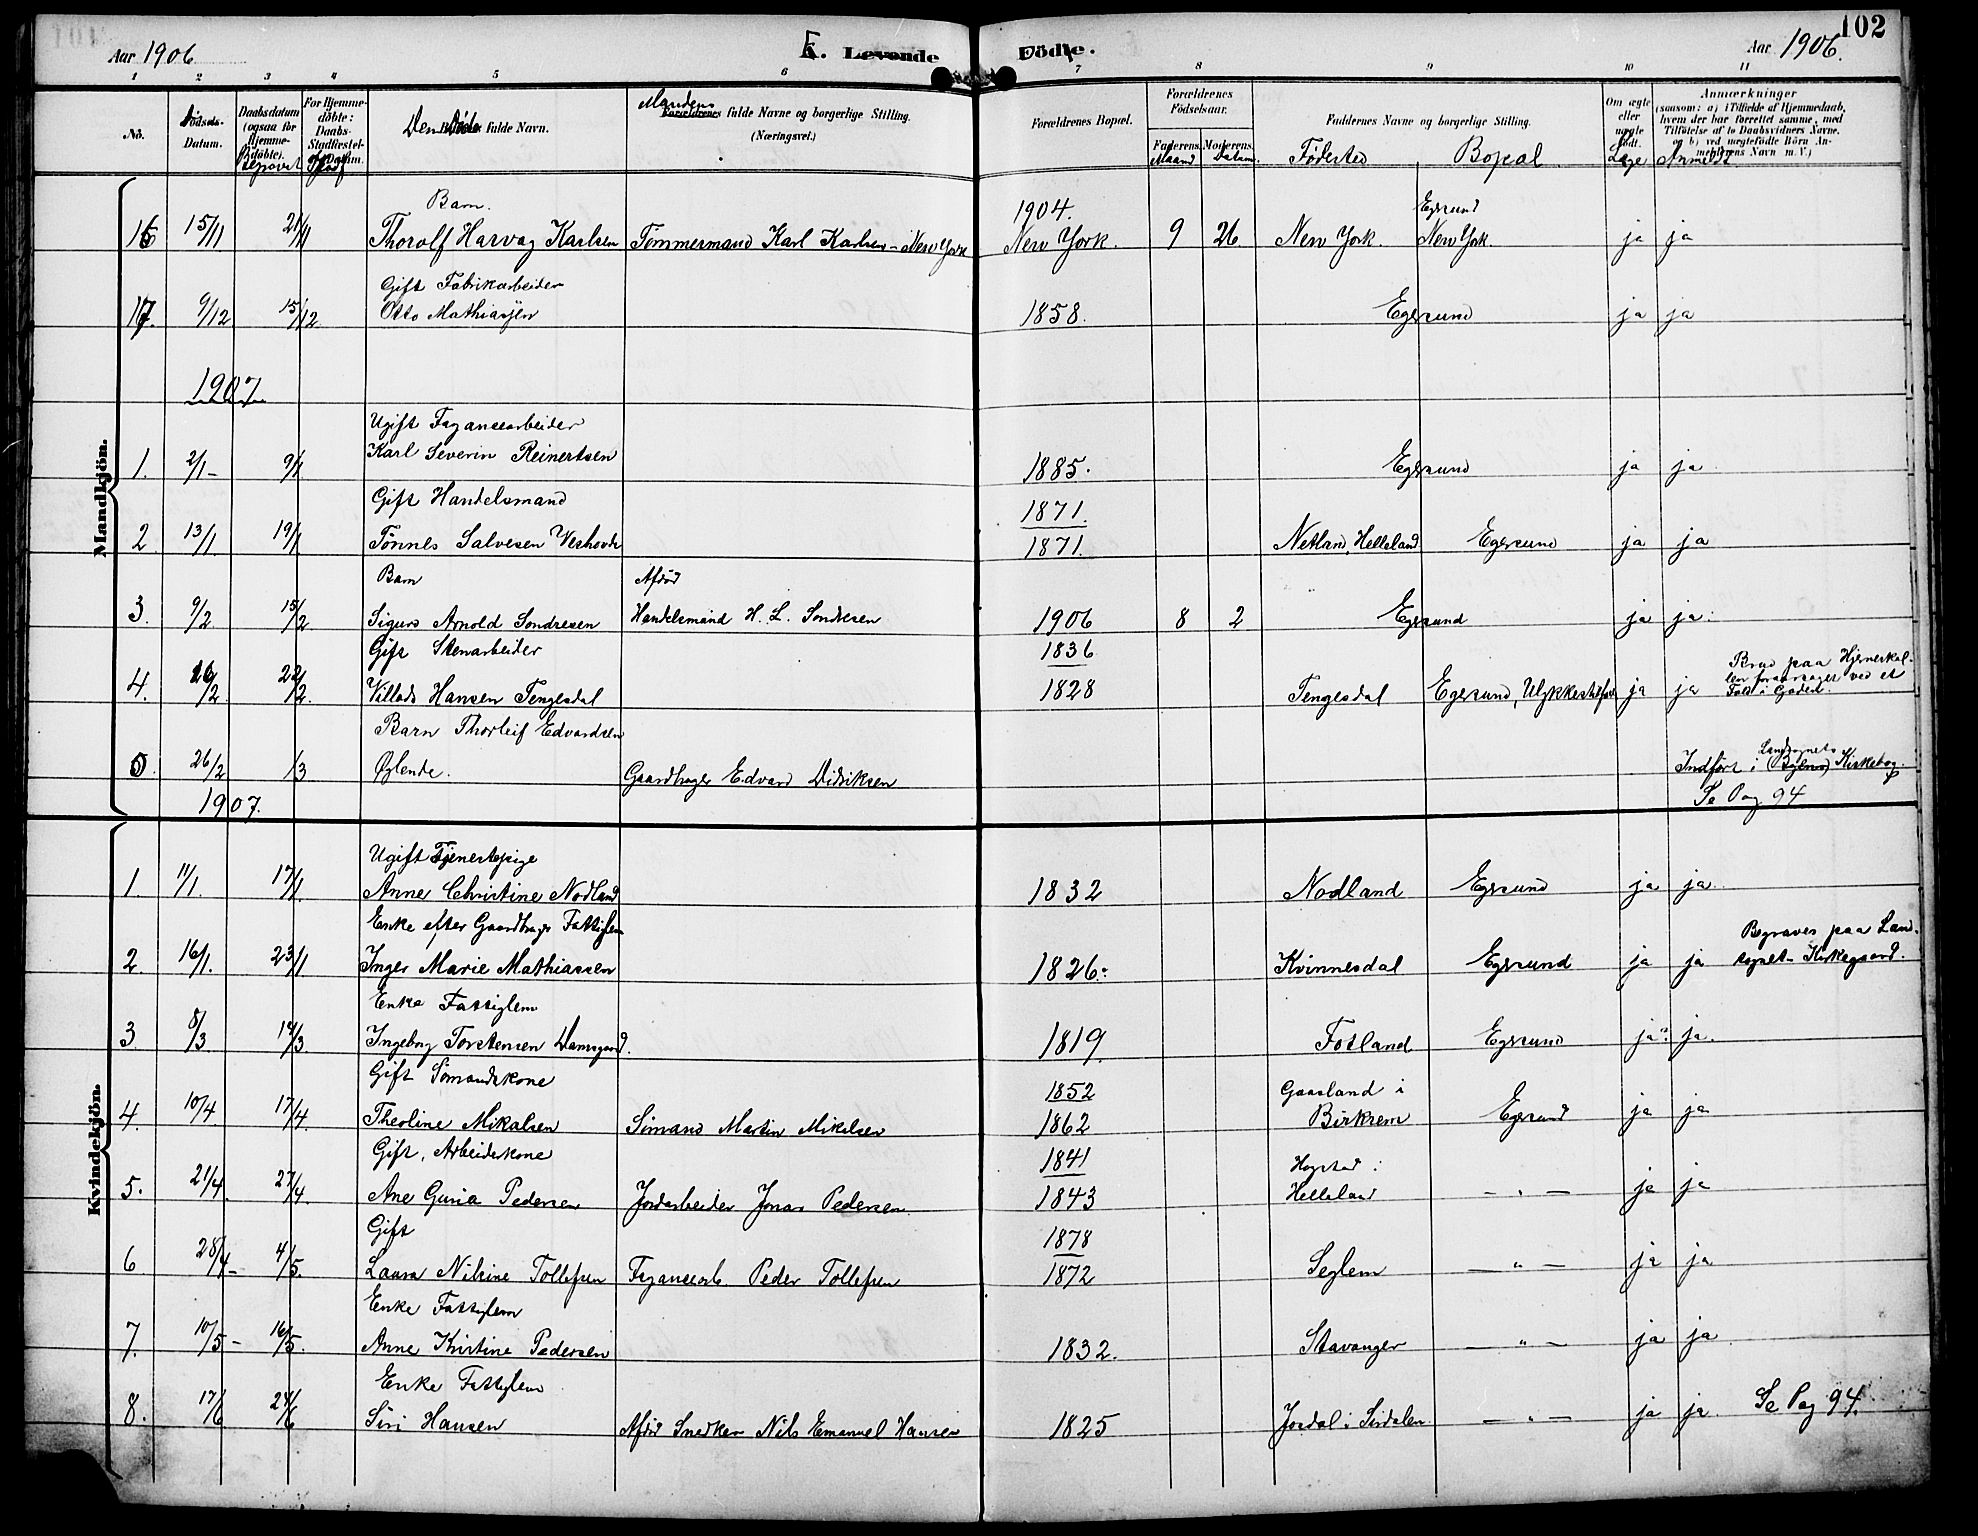 102
Aar 1906. E. Levende Födte. Aar 1906.
1 2 3 4 5 6 7 8 9 10 11
No. Dødsdatum. Daabsdatum (ogsaa for Hjemmedöbte). Begravet For Hjemmedöbte: Daabs-Stadfæstelses-Datum. Den Dødes fulde Navn. Mandens Forældrenes fulde Navne og borgerlige Stilling. (Næringsvei.) Forældrenes Bopæl. Forældrenes Födselsaar. Faderens. Moderens. Maaned Datum. Faddernes Navne og borgerlige Stilling. Fødested Bopæl Om ægte eller uægte födt. Læge Anmeldt Anmærkninger
(saasom: a) i Tilfælde af Hjemmedaab, hvem der har forrettet samme, med Tilföielse af to Daabsvidners Navne, og b) ved uægtefödte Börn Anmelderens Navn m. V.)
Mandkjön.
Barn. 1904. Egersund
16 15/11 21/11 Thorolf Harvag Karlsen Tømmermand Karl Karlsen - New York New York. 9 26 New York. New York. ja ja
Gift Fabrikarbeider
17. 9/12 15/12 Otto Mathiasen 1858. Egersund ja ja
1907.
Ugift Fayancearbeider
1. 2/1 - 9/1 Karl Severin Reinertsen 1885. Egersund ja ja
Gift Handelsmand 1871.
2 13/1 19/1 Tønnes Salvesen Veshovde 1871. Netland, Helleland Egersund ja ja
Barn Afdød
3. 9/2 15/2 Sigurd Arnold Sondresen Handelsmand H. L. Sondresen 1906 8 2 Egersund ja ja.
Gift Stenarbeider 1836
4. 16/2 22/2. Villads Hansen Tengesdal 1828 Tengesdal Egersund, Ulykkestilfælde ja ja Brud paa Hjerneskallen foraarsaget ved et Fald i Gaden.
Barn Thorleif Edvardsen
0. 26/2 /3 Øglende. Gaardbruger Edvard Didriksen Indført i Landsognets (Byens) Kirkebog.
1907. Se Pag 94
Kvindekjön.
Ugift Tjenestepige
1 11/1. 17/1. Anne Christine Nodland 1832 Nodland Egersund ja ja.
Enke efter Gaardbruger Fattiglem
2. 16/1. 23/1 Inger Marie Mathiassen 1826. Kvinnesdal Egersund ja ja Begraves paa Landsognets Kirkegaard.
Enke Fattiglem
3 8/3. 14/3 Ingeborg Torstensen Damsgaard. 1819. Fotland Egersund ja ja.
Gift Sømandskone 1852 Gaasland i
4. 10/4. 17/4. Theoline Mikalsen Sømand Martin Mikalsen 1862 Birkrem Egersund ja ja
Gift, Arbeiderkone 1841 Hogstad i
5. 21/4. 27/4. Ane Guria Pedersen Jordarbeider Jonas Pedersen. 1843 Helleland — " — ja ja
Gift 1878
6 28/4 - 4/5. Laura Nilsine Tollefsen Fayancearb. Peder Tollefsen 1872 Seglem — " — ja ja
Enke Fattiglem
7. 10/5 - 16/5. Anne Kristine Pedersen 1832. Stavanger — " — ja ja
Enke Fattiglem
8. 17/6 24/6 Siri Hansen Afdød Snedker Nils Emanuel Hansen 1825 Josdal i Sirdalen — " — ja ja. Se Pag 94.